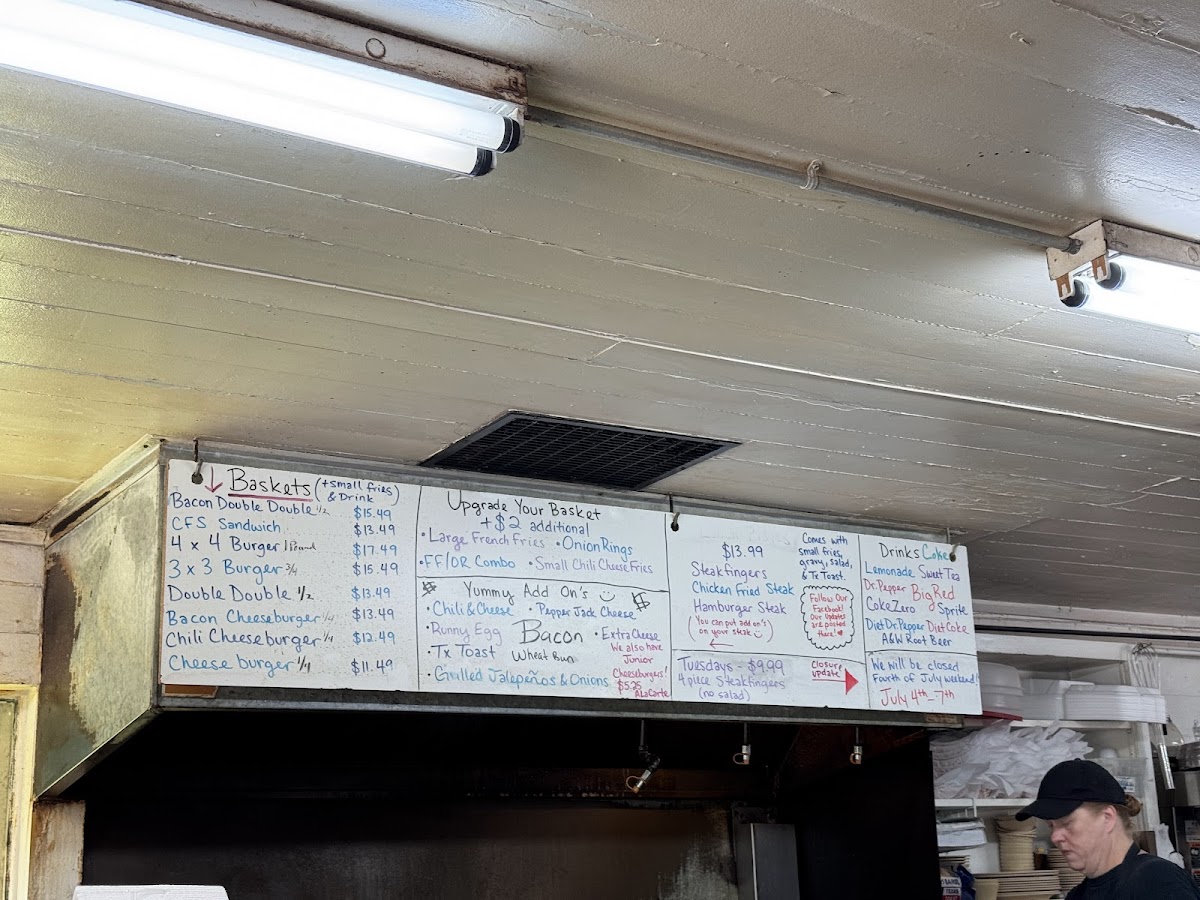 Baskets (+small fries & Drink)
Bacon Double Double 1/2 $15.49
CFS Sandwich $13.49
4 x 4 Burger 1 Pound $17.49
3 x 3 Burger 3/4 $15.49
Double Double 1/2 $13.49
Bacon Cheeseburger 1/4 $13.49
Chili Cheeseburger 1/4 $12.49
Cheeseburger 1/4 $11.49
Upgrade Your Basket
+$2 additional
•Large French Fries •Onion Rings
•FF/OR Combo •Small Chili Cheese Fries
$ Yummy Add On's $
•Chili & Cheese •Pepper Jack Cheese
•Runny Egg Bacon •Extra Cheese
•Tx Toast Wheat Bun
•Grilled Jalepeños & Onions
We also have
Junior
Cheeseburgers!
$5.25
ALaCarte
$13.99
Steakfingers
Chicken Fried Steak
Hamburger Steak
(You can put add on's
on your steak)
Comes with
small fries,
gravy, salad,
& Tx Toast.
Follow Our
Facebook!
Our updates
are posted
there!
Tuesdays - $9.99
4 piece Steakfingers
(no salad)
Closure
update
Drinks Coke
Lemonade Sweet Tea
Dr. Pepper Big Red
Coke Zero Sprite
Diet Dr. Pepper Diet Coke
A&W Root Beer
We will be closed
Fourth of July weekend!!
July 4th-7th